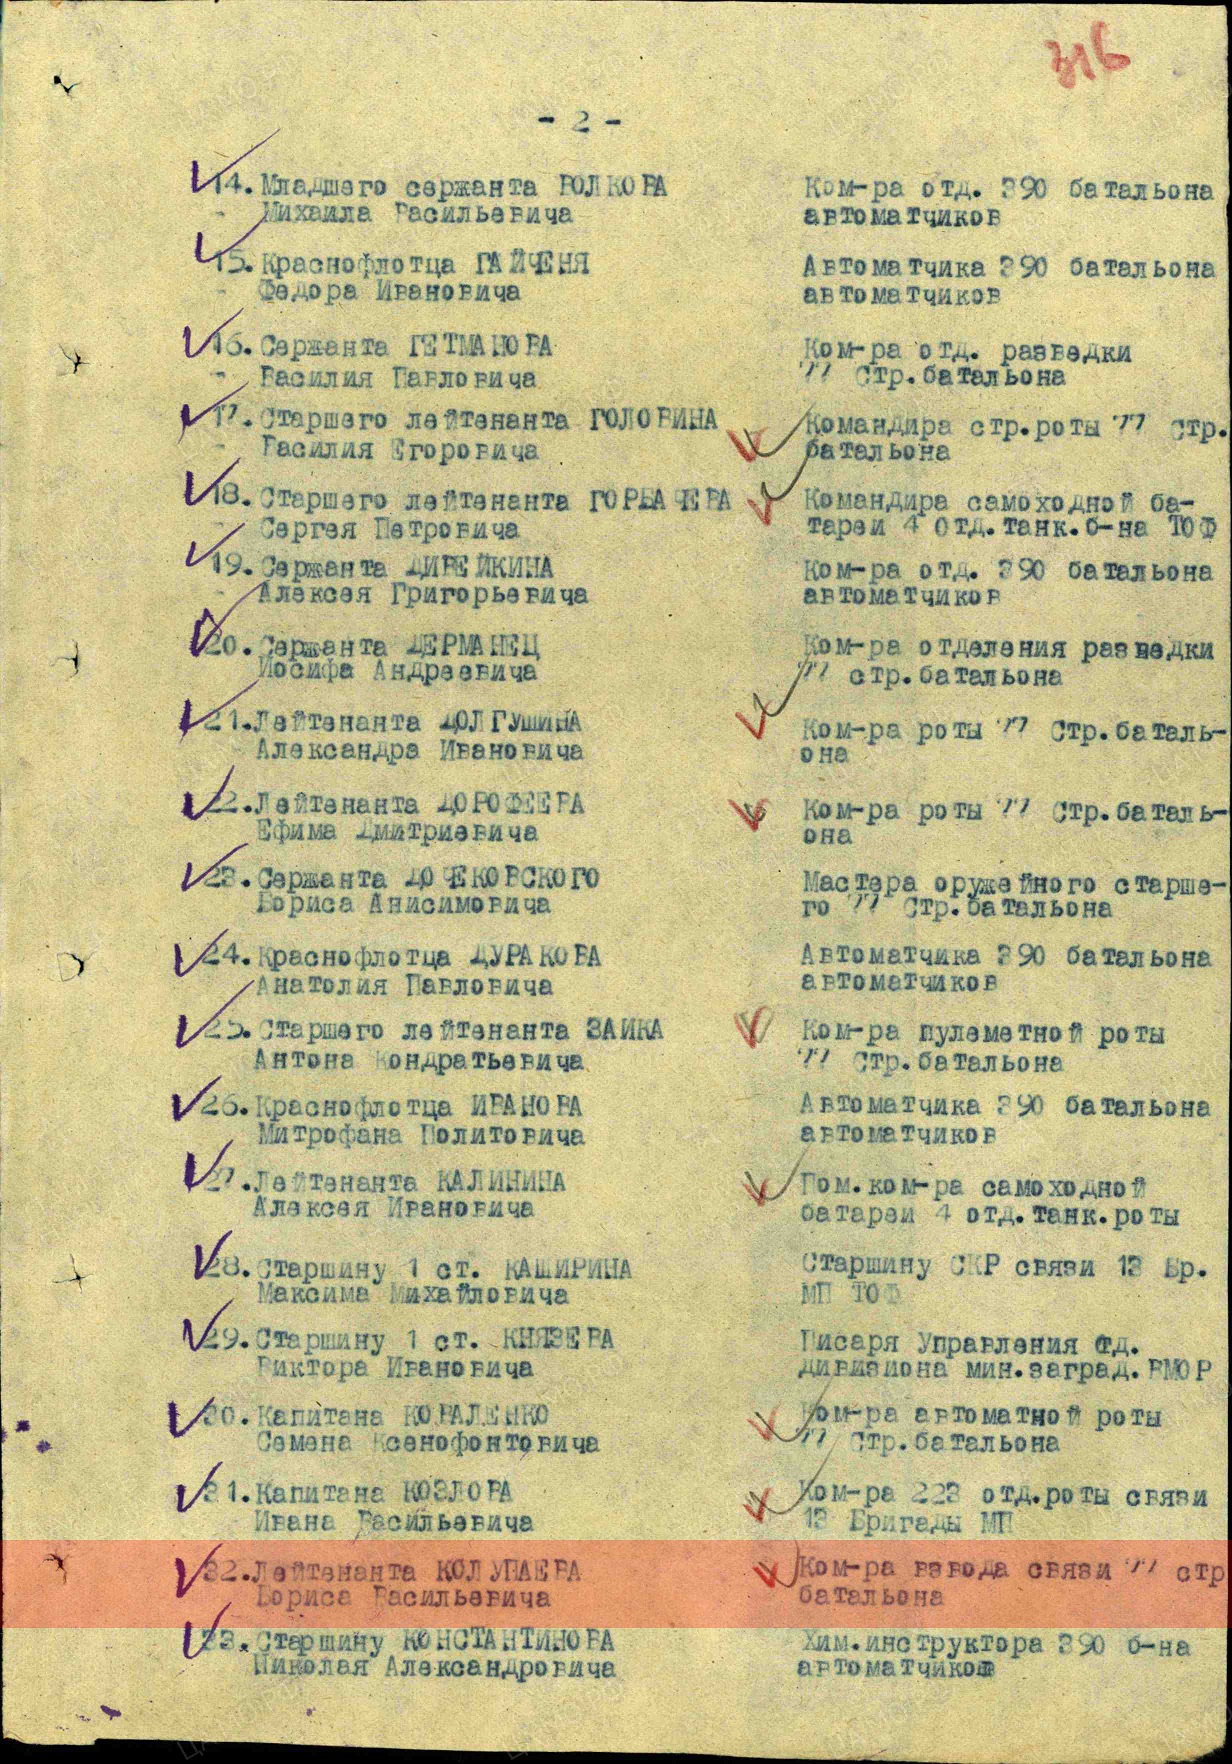 316
- 2 -
14. Младшего сержанта ВОЛКОВА Ком-ра отд. 390 батальона
Михаила Васильевича автоматчиков
15. Краснофлотца ГАЙЧЕНЯ Автоматчика 390 батальона
Федора Ивановича автоматчиков
16. Сержанта ГЕТМАНОВА Ком-ра отд. разведки
Василия Павловича 77 Стр.батальона
17. Старшего лейтенанта ГОЛОВИНА Командира стр.роты 77 Стр.
Василия Егоровича батальона
18. Старшего лейтенанта ГОРБАЧЕВА Командира самоходной ба-
Сергея Петровича тареи 4 отд.танк.б-на ТОФ
19. Сержанта ДИВЕЙКИНА Ком-ра отд. 390 батальона
Алексея Григорьевича автоматчиков
20. Сержанта ДЕРМАНЕЦ Ком-ра отделения разведки
Иосифа Андреевича 77 стр.батальона
21. Лейтенанта ДОЛГУШИНА Ком-ра роты 77 Стр.баталь-
Александра Ивановича она
22. Лейтенанта ДОРОФЕЕВА Ком-ра роты 77 Стр.баталь-
Ефима Дмитриевича она
23. Сержанта ДОЧЕКОВСКОГО Мастера оружейного старше-
Бориса Анисимовича го 77 Стр.батальона
24. Краснофлотца ДУРАКОВА Автоматчика 390 батальона
Анатолия Павловича автоматчиков
25. Старшего лейтенанта ЗАИКА Ком-ра пулеметной роты
Антона Кондратьевича 77 Стр.батальона
26. Краснофлотца ИВАНОВА Автоматчика 390 батальона
Митрофана Политовича автоматчиков
27. Лейтенанта КАЛИНИНА Пом.ком-ра самоходной
Алексея Ивановича батареи 4 отд.танк.роты
28. Старшину 1 ст. КАШИРИНА Старшину СКР связи 13 Бр.
Максима Михайловича МП ТОФ
29. Старшину 1 ст. КНЯЗЕВА Писаря Управления отд.
Виктора Ивановича дивизиона мин.заград. ВМОР
30. Капитана КОВАЛЕНКО Ком-ра автоматной роты
Семена Ксенофонтовича 77 Стр.батальона
31. Капитана КОЗЛОВА Ком-ра 223 отд.роты связи
Ивана Васильевича 13 Бригады МП
32. Лейтенанта КОЛУПАЕВА Ком-ра взвода связи 77 стр
Бориса Васильевича батальона
33. Старшину КОНСТАНТИНОВА Хим.инструктора 390 б-на
Николая Александровича автоматчиков